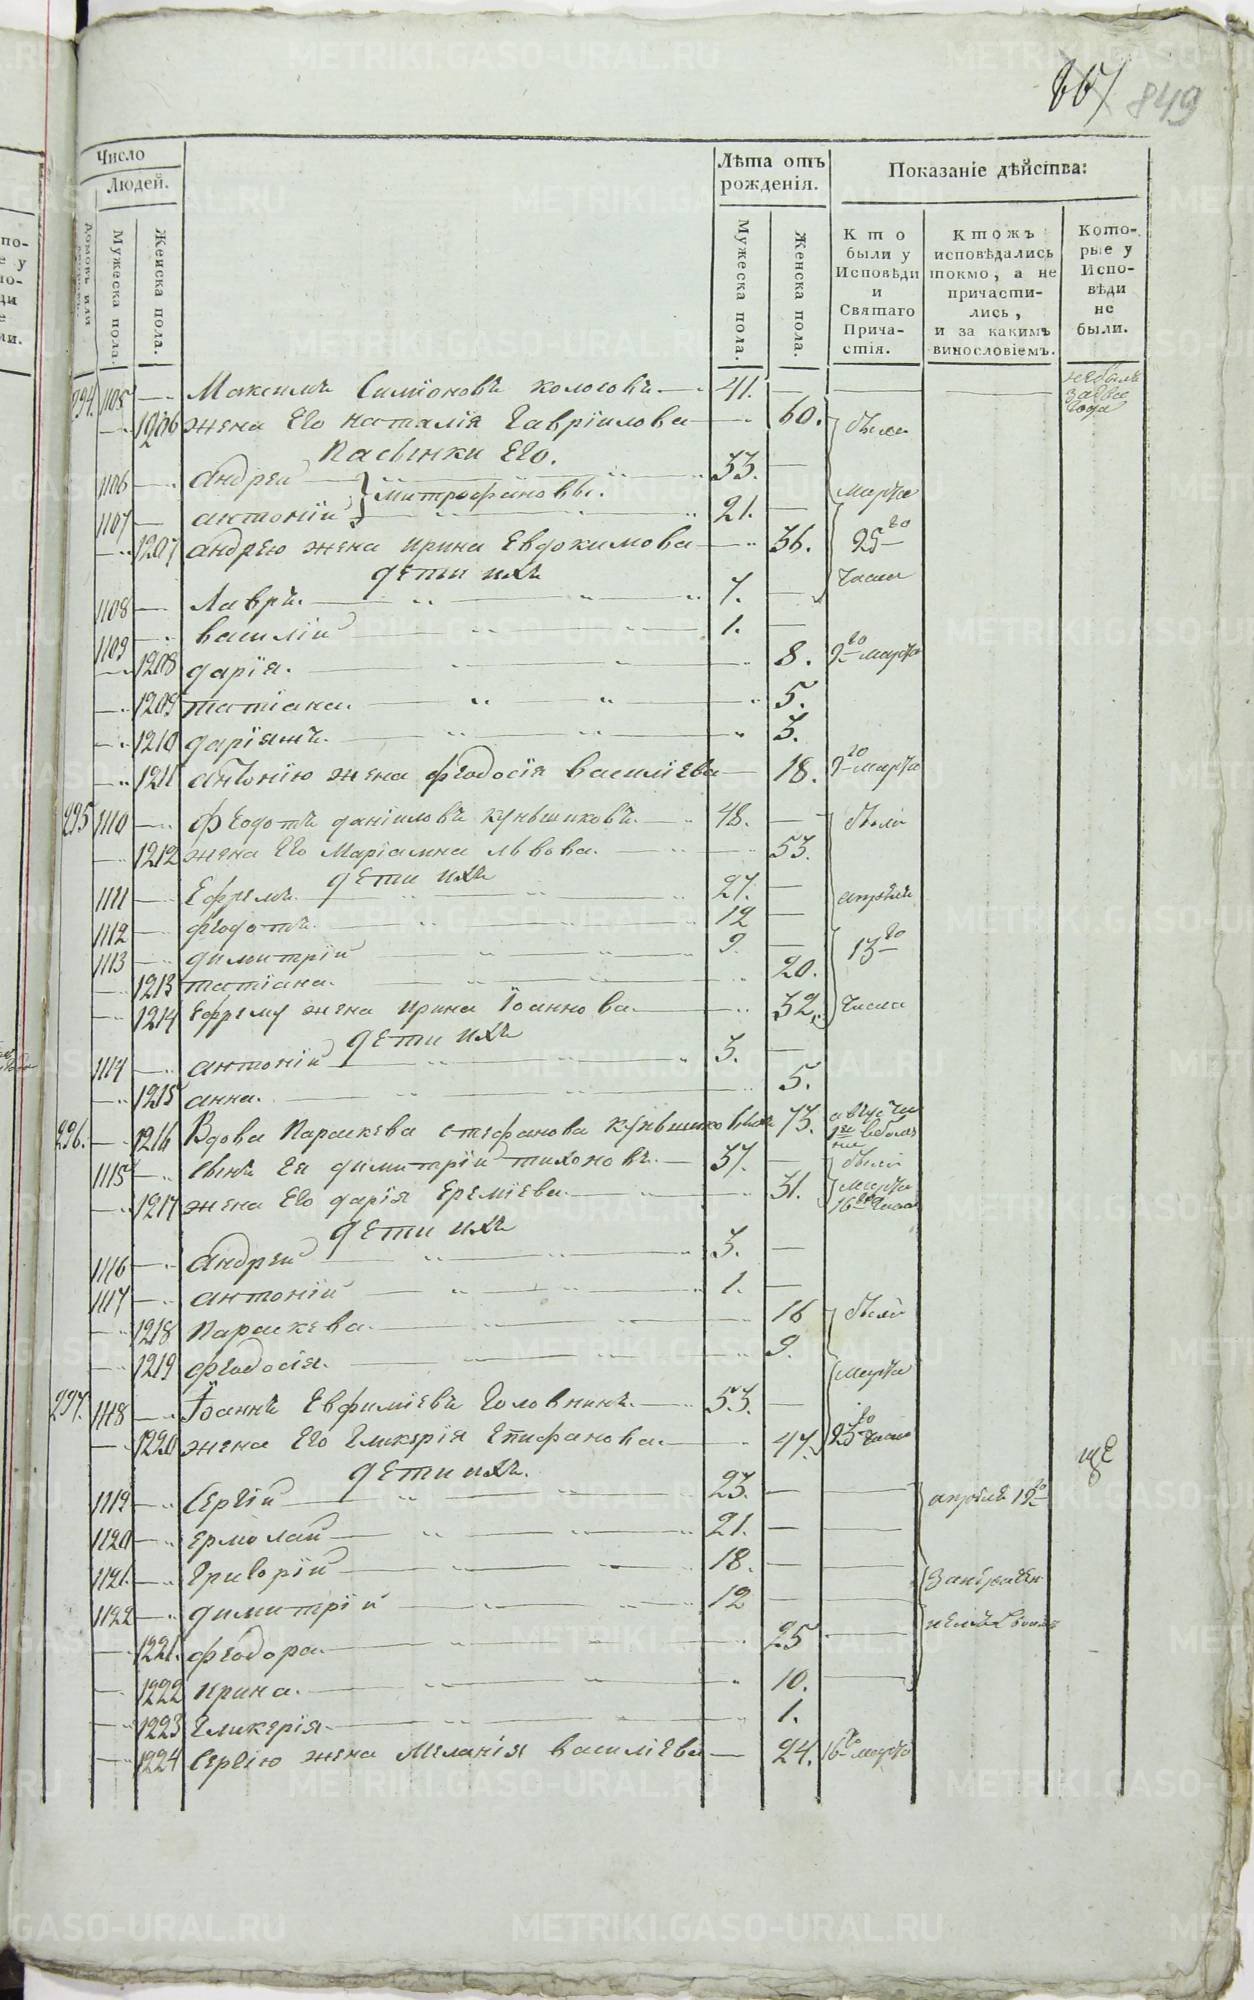 849
Число
Людей.
Лѣта отъ рожденія.
Показаніе дѣйства:
домовъ или
Мужеска пола.
Женска пола.
Мужеска пола.
Женска пола.
Кто были у Исповѣди и Святаго Причастія.
Ктожъ исповѣдались токмо, а не причастились, и за какимъ винословіемъ.
Которые у Исповѣди не были.
294. 1105 Максимъ Симіоновъ 41.
1206 жена Его Наталія Гавріилова 60. были
Пасынки Его.
1106 Андрей 33.
Митрофановы. марта
1107 антоній 21.
1207 андрею жена ирина Евдокимова 36. 25го
дети ихъ числа
1108 Лавръ. 7.
1109 василій 1.
1208 дарія. 8. 9го марта
1209 татіана. 5.
1210 3.
1211 антонію жена феодосія василіева 18. 9го марта
295 1110 Феодотъ даніиловъ кунщиковъ. 48. были
1212 жена Его Маріамна львова. 53.
дети ихъ
1111 Ефремъ. 27. апреля
1112 федотъ. 12
1113 димитрій 9. 13го
1213 татіана. 20.
1214 Ефрему жена ирина Іоаннова. 32. числа
дети ихъ
1114 антоній 3.
1215 анна. 5.
296. 1216 Вдова параскева стефанова 73.
1115 сынъ Ея димитрій тихоновъ. 37. были
1217 жена Его дарія Еремѣева. 31. марта 16го числа
дети ихъ
1116 андрей 3.
1117 антоній 1.
1218 параскева. 16 были
1219 феодосія. 9.
марта
297. 1118 Іоаннъ Евфиміевъ Головнинъ. 53.
1220 жена Его Гликерія Епифанова. 47. 25го числа
дети ихъ.
1119 Сергій 23. апреля 19го
1120 ермолай 21.
1121. григорій 18.
1122 димитрій 12
1221. феодора 25
1222 ирина. 10.
1223 Гликерія. 1.
1224 Сергію жена Меланія василіева 24. 16го марта
METRIKI.GASO-URAL.RU